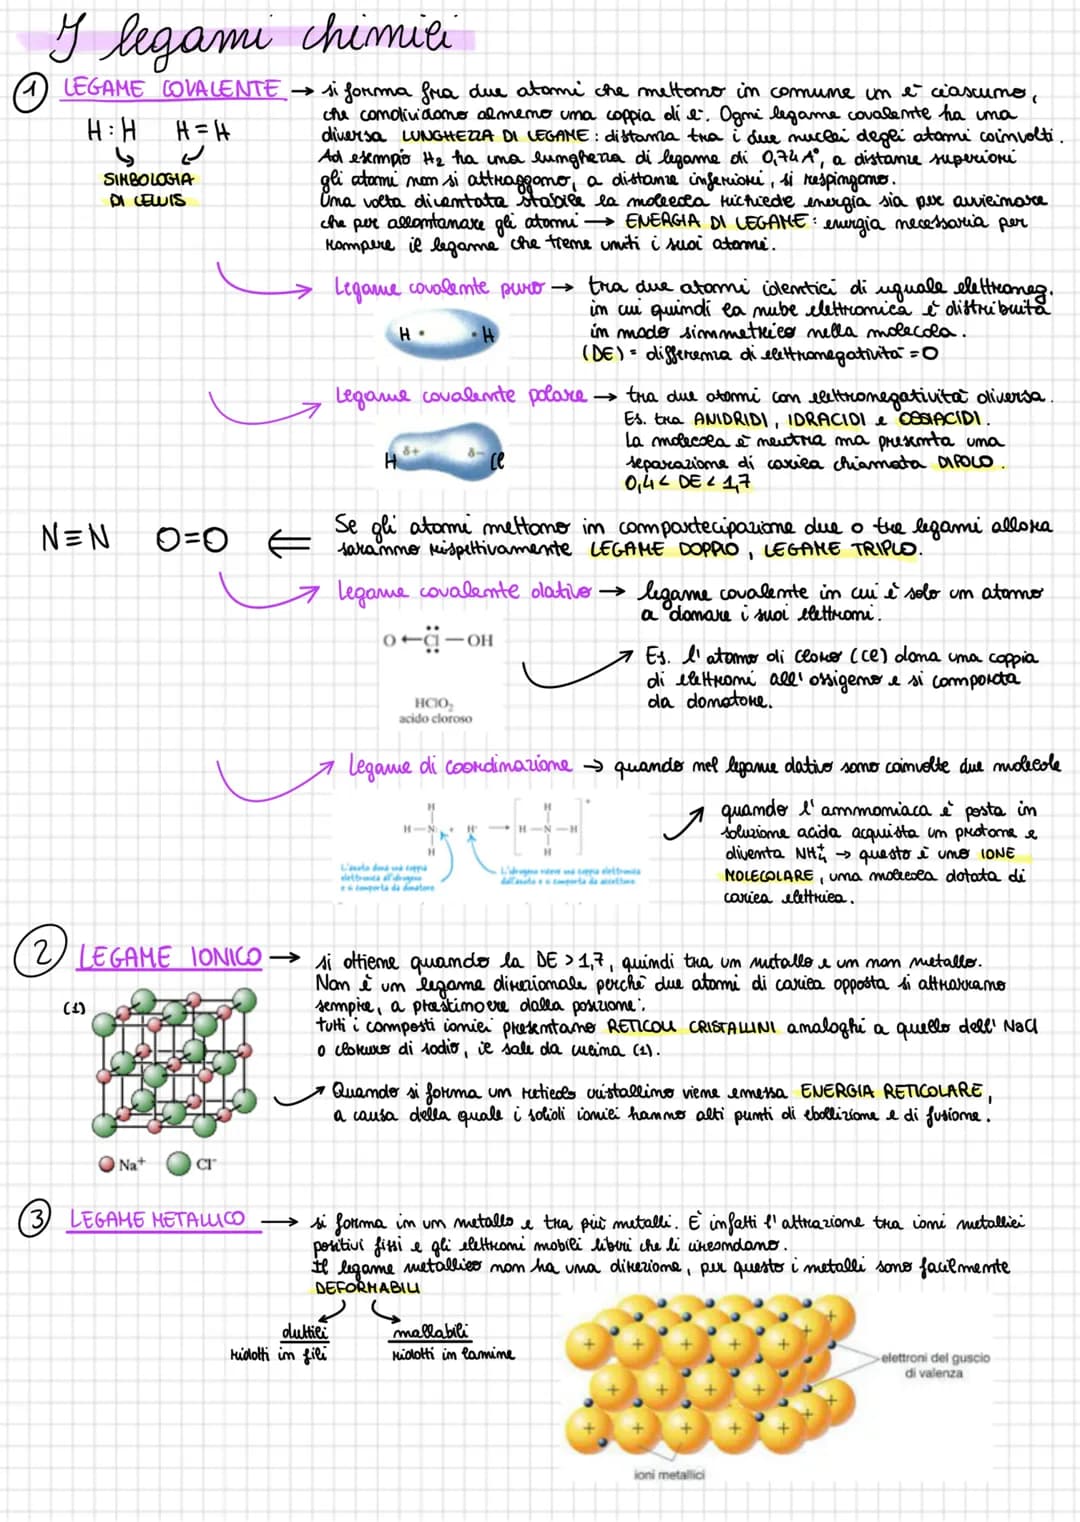 I legami chimici
1 LEGAME COVALENTE → si forma fra due atomi che mettono in comune un e⁻ ciascuno,
che condividono almeno una coppia di e⁻. Ogni legame covalente ha una
H:H H=H diversa LUNGHEZZA DI LEGAME: distanza tra i due nuclei degli atomi coinvolti.
Ad esempio H₂ ha una lunghezza di legame di 0,74 A°, a distanze superiori
SIMBOLOGIA gli atomi non si attraggono, a distanze inferiori, si respingono.
DI LEWIS Una volta diventata stabile la molecola richiede energia sia per avvicinare
che per allontanare gli atomi → ENERGIA DI LEGAME: energia necessaria per
rompere il legame che tiene uniti i suoi atomi.
Legame covalente puro → tra due atomi identici di uguale elettroneg.
in cui quindi la nube elettronica è distribuita
H · · H in modo simmetrico nella molecola.
(DE) = differenza di elettronegatività = 0
Legame covalente polare → tra due atomi con elettronegatività diversa.
Es. tra ANIDRIDI, IDRACIDI e OSSIACIDI.
H δ+ δ- Cl La molecola è neutra ma presenta una
separazione di carica chiamata DIPOLO.
0,4 < DE < 1,7
N≡N O=O ⇐ Se gli atomi mettono in compartecipazione due o tre legami allora
saranno rispettivamente LEGAME DOPPIO, LEGAME TRIPLO.
Legame covalente dativo → legame covalente in cui è solo un atomo
a donare i suoi elettroni.
O ← Cl — OH
Es. l'atomo di cloro (Cl) dona una coppia
di elettroni all'ossigeno e si comporta
da donatore.
HClO₂
acido cloroso
Legame di coordinazione → quando nel legame dativo sono coinvolte due molecole
H H +
H—N: + H⁺ → H—N—H
H H
quando l'ammoniaca è posta in
soluzione acida acquista un protone e
diventa NH₄⁺ → questo è uno IONE
MOLECOLARE, una molecola dotata di
carica elettrica.
L'azoto dona una coppia
elettronica all'idrogeno
e si comporta da donatore
L'idrogeno riceve una coppia elettronica
dall'azoto e si comporta da accettore
2 LEGAME IONICO → si ottiene quando la DE > 1,7, quindi tra un metallo e un non metallo.
Non è un legame direzionale perché due atomi di carica opposta si attrarranno
(1) sempre, a prescindere dalla posizione;
tutti i composti ionici presentano RETICOLI CRISTALLINI analoghi a quello dell'NaCl
o cloruro di sodio, il sale da cucina (1).
Quando si forma un reticolo cristallino viene emessa ENERGIA RETICOLARE,
a causa della quale i solidi ionici hanno alti punti di ebollizione e di fusione.
Na⁺ Cl⁻
3 LEGAME METALLICO → si forma in un metallo e tra più metalli. È infatti l'attrazione tra ioni metallici
positivi fissi e gli elettroni mobili liberi che li circondano.
Il legame metallico non ha una direzione, per questo i metalli sono facilmente
DEFORMABILI
duttili malleabili
ridotti in fili ridotti in lamine
elettroni del guscio
di valenza
ioni metallici